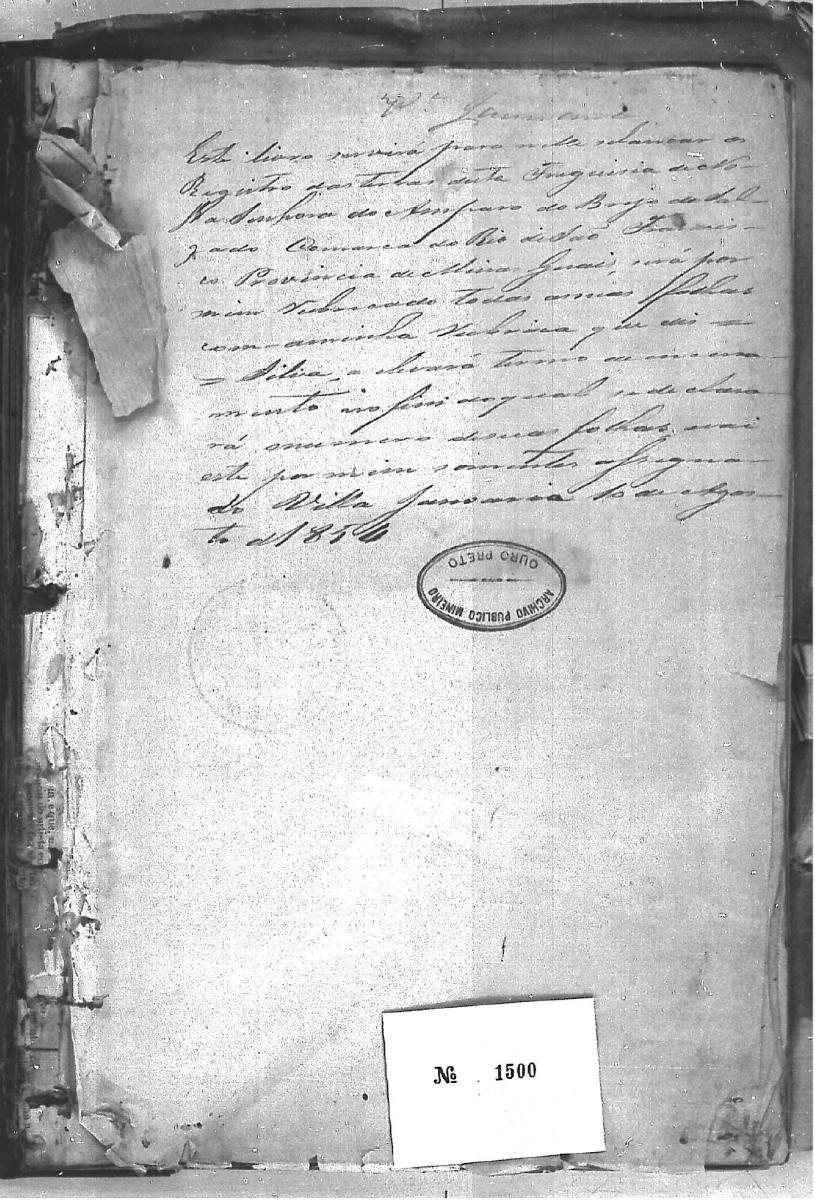 Januaria
Este livro servirá para nelle se lançar os
Registro das terras desta Freguesia de No-
ssa Senhora do Amparo do Brejo do Sal-
gado Comarca do Rio de São Francis-
co Provincia de Minas Gerai, será por
mim rubricado todas as suas folhas
com a minha rubrica que diz =
= Silva, e levará termo de encerra-
mento no fim do qual se declara-
rá o numero de suas folhas, vai
este por mim somente assigna-
do Villa Januaria 10 de Agos-
to de 1856
ARCHIVO PUBLICO MINEIRO
OURO PRETO
№ 1500